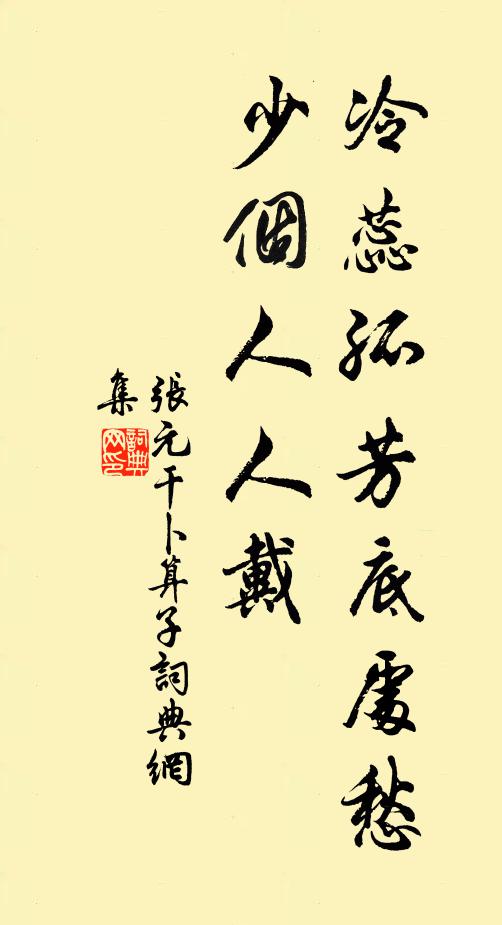 冷蕊孤芳底處愁
少個人人戴
張元干卜算子詞典網
集
詞典网印